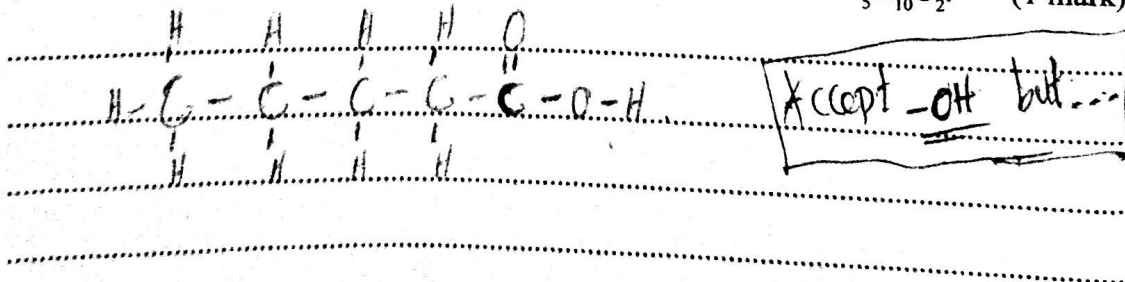 5 10 2. (1 mark)
H H H H O
H - C - C - C - C - C - O - H
H H H H
Accept -OH but....